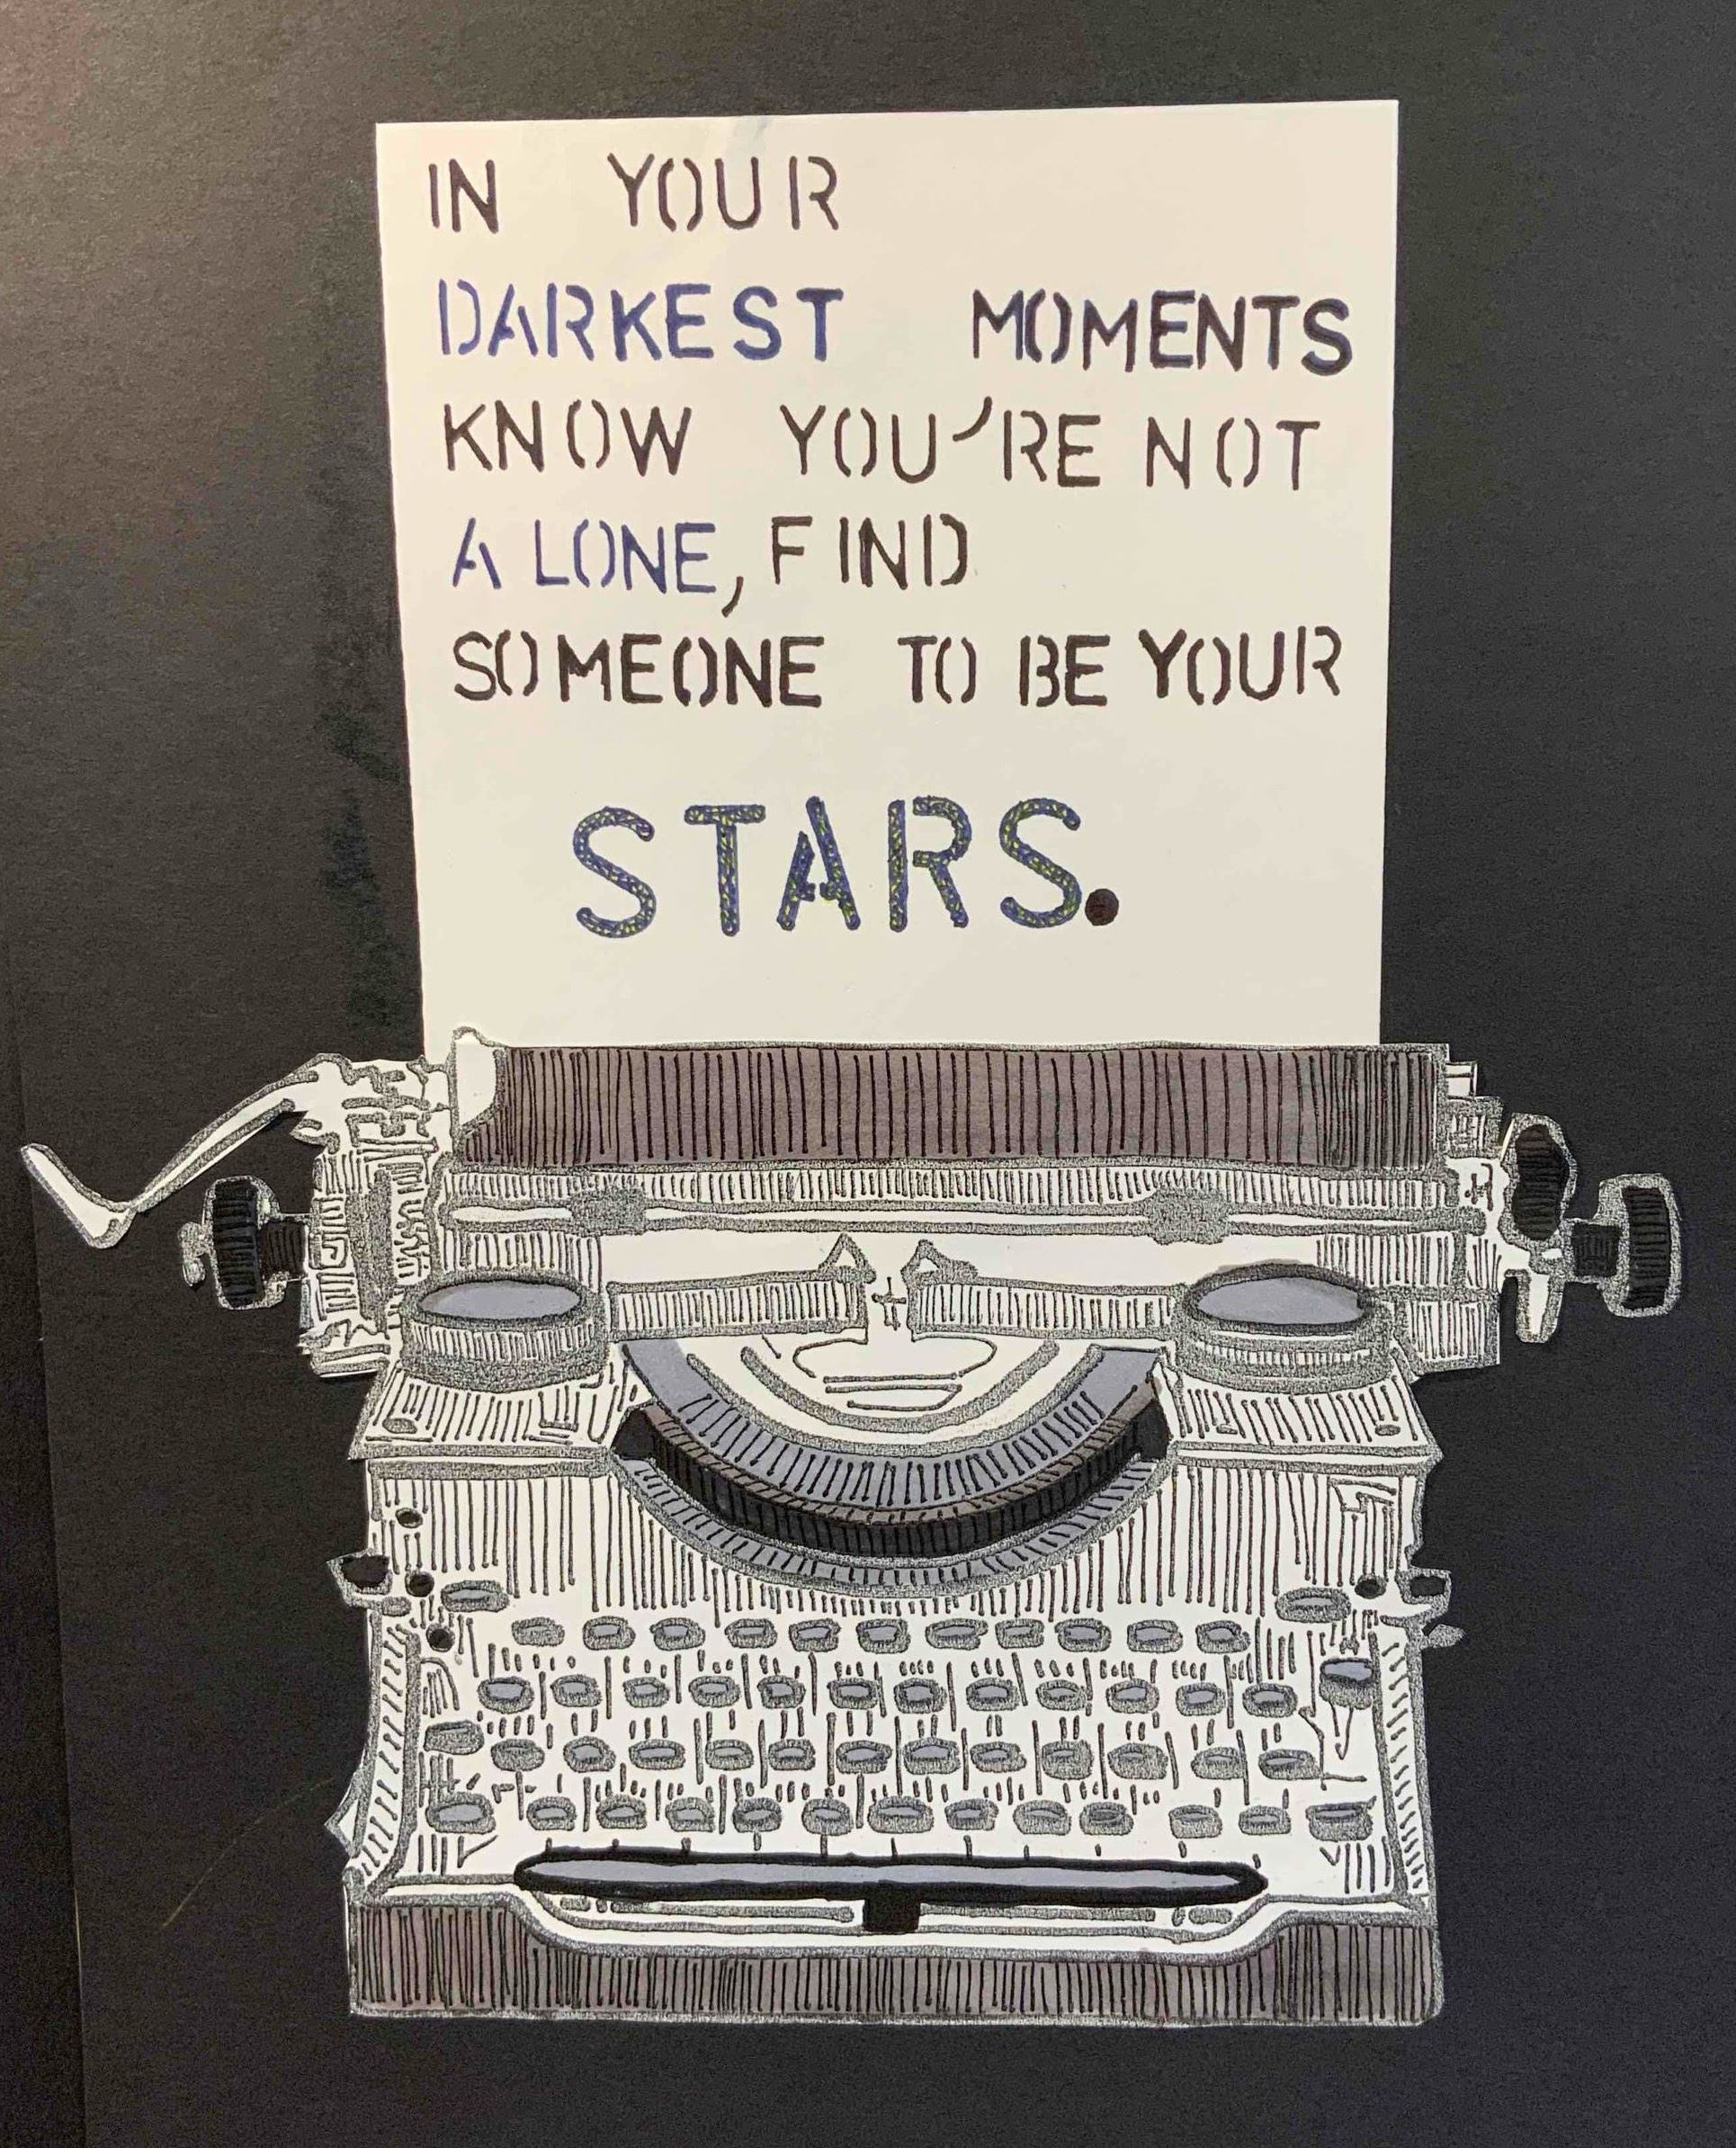 IN YOUR
DARKEST MOMENTS
KNOW YOU'RE NOT
ALONE, FIND
SOMEONE TO BE YOUR
STARS.